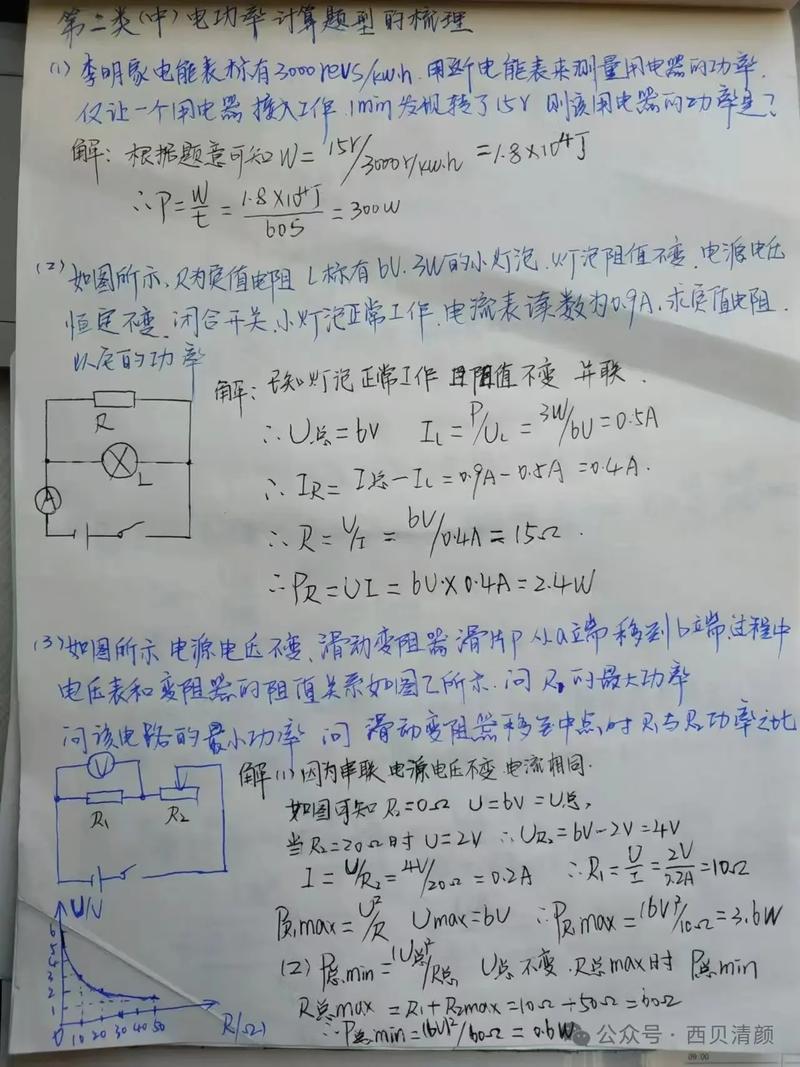 第二类(中)电功率计算题型的梳理
(1) 李明家电能表标有3000revs/kw.h. 用这个电能表来测量用电器的功率.
仅让一个用电器 接入工作. 1min发现转了15r 则该用电器的功率是?
解: 根据题意可知 W = 15r/3000r/kw.h = 1.8×10⁴J
∴P = W/t = 1.8×10⁴J/60S = 300W
(2) 如图所示. R为定值电阻 L标有6V.3W的小灯泡. 灯泡阻值不变. 电源电压
恒定不变. 闭合开关. 小灯泡正常工作. 电流表读数为0.9A. 求定值电阻.
以R的功率
解: 已知灯泡正常工作 且阻值不变 并联.
R
L
A
∴U总=6V I_L = P/U_L = 3W/6V = 0.5A
∴ I_R = I总-I_L = 0.9A-0.5A = 0.4A.
∴ R = U/I = 6V/0.4A = 15Ω.
∴P_R = UI = 6V×0.4A = 2.4W
(3) 如图所示 电源电压不变. 滑动变阻器滑片P从a端移到b端.过程中
电压表和变阻器的阻值关系如图乙所示. 问 R₁的最大功率
问该电路的最小功率 问 滑动变阻器移至中点时 R₁与R₂功率之比
V
R₁ R₂
解(1) 因为串联 电源电压不变 电流相同.
如图可知 R₂=0Ω U=6V=U总,
当R₂=20Ω时 U=2V ∴U_R₂=6V-2V=4V
I = U/R₂ = 4V/20Ω = 0.2A ∴R₁ = U/I = 2V/0.2A = 10Ω
P_R₁max = U²/R Umax=6V ∴P_R₁max = (6V)²/10Ω = 3.6W
(2) P总min = (U总)²/R总 U总不变. R总max时 P总min
R总max = R₁+R₂max = 10Ω+50Ω = 60Ω
∴P总min = (6V)²/60Ω = 0.6W
U/V
6
5
4
3
2
1
0 10 20 30 40 50 R/(Ω)
公众号 · 西贝清颜
09:00